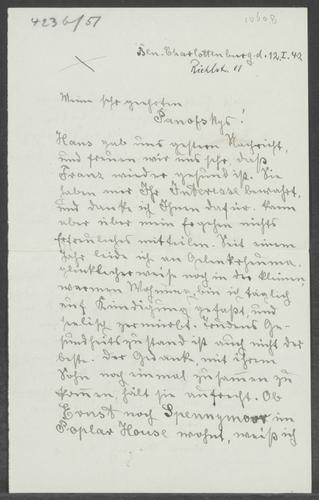 423b/51
Bln. Charlottenburg d. 12.I.42
Riehlstr. 11
Meine sehr geehrten
Panofskys!
Hans gab uns gestern Nachricht,
und freuen wir uns sehr, daß
Franz wieder gesund ist. Sie
haben mir Ihr Interesse bewahrt,
und danke ich Ihnen dafür. Kann
aber über mein Ergehen nichts
Erfreuliches mitteilen. Seit einem
Jahr leide ich an Gelenkrheuma.
glücklicherweise noch in der kleinen
warmen Wohnung, bin ich täglich
auf Kündigung gefaßt, und
seelisch zermürbt. Trudens Ge-
sundheitszustand ist auch nicht der
beste. Der Gedanke mit ihrem
Sohn noch einmal zusamen zu
kommen, hält sie aufrecht. Ob
Ernst noch Spennymoor im
Poplar House wohnt, weiß ich